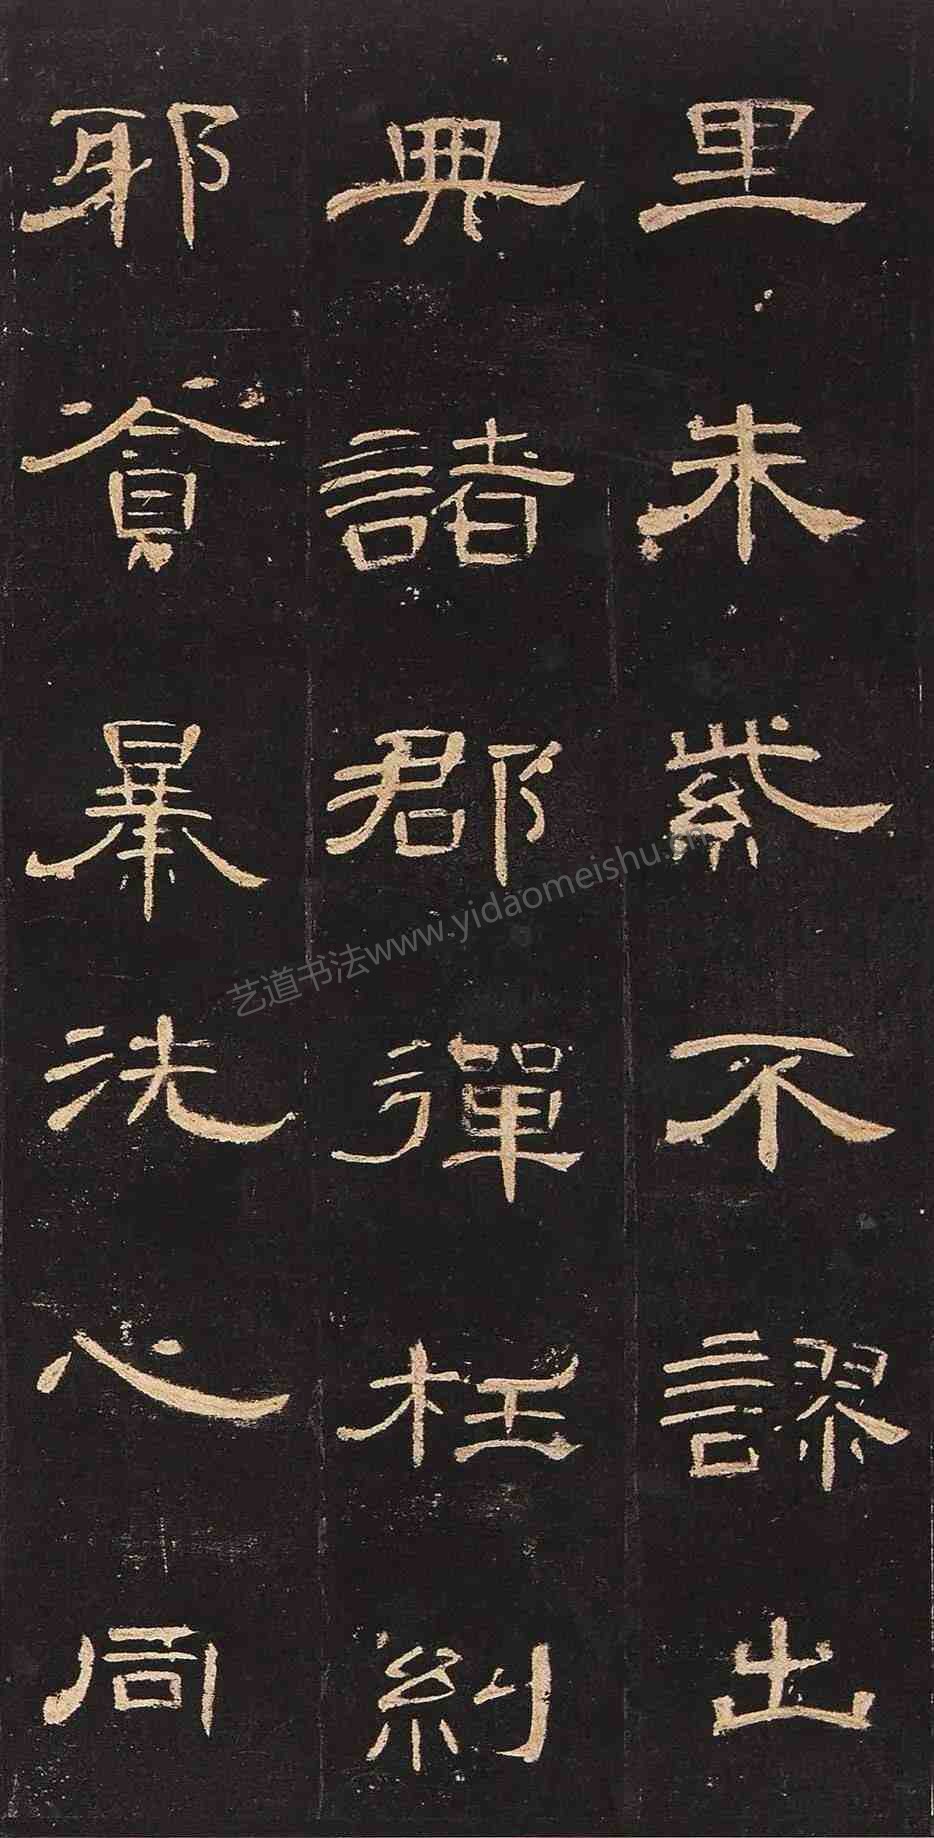 里朱紫不謬出
典諸郡彈枉糾
邪貪暴洗心同
艺道书法www.yidaomeishu.cn